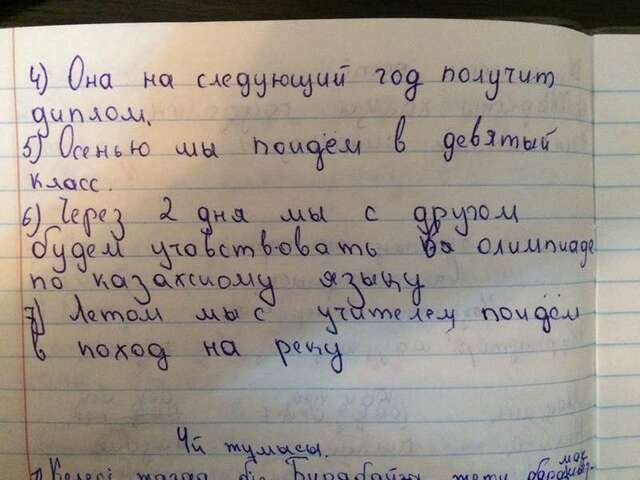 4) Она на следующий год получит
диплом.
5) Осенью мы поидём в девятый
класс.
6) Через 2 дня мы с другом
будем учавствовать в олимпиаде
по казахскому языцу
7) Летом мы с учителем поидём
в поход на реку
Үй жумысы.